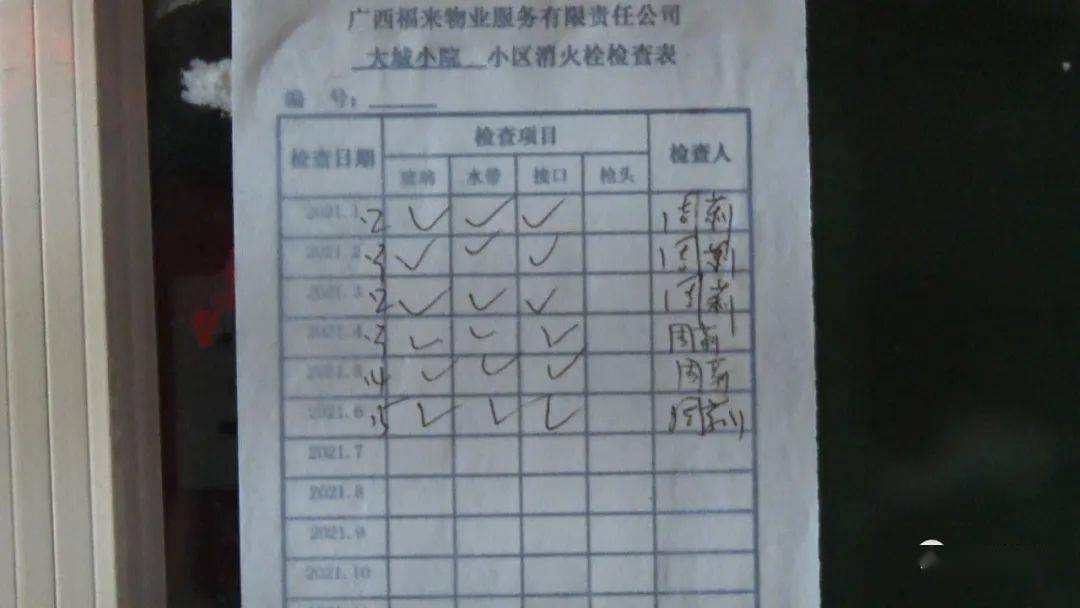 广西福来物业服务有限责任公司
大城小院 小区消火栓检查表
编 号:
检查日期 检查项目 检查人
玻璃 水带 接口 枪头
2021.1.2 ✓ ✓ ✓ 周莉
2021.2.3 ✓ ✓ ✓ 周莉
2021.3.2 ✓ ✓ ✓ 周莉
2021.4.3 ✓ ✓ ✓ 周莉
2021.5.4 ✓ ✓ ✓ 周莉
2021.6.5 ✓ ✓ ✓ 周莉
2021.7
2021.8
2021.9
2021.10